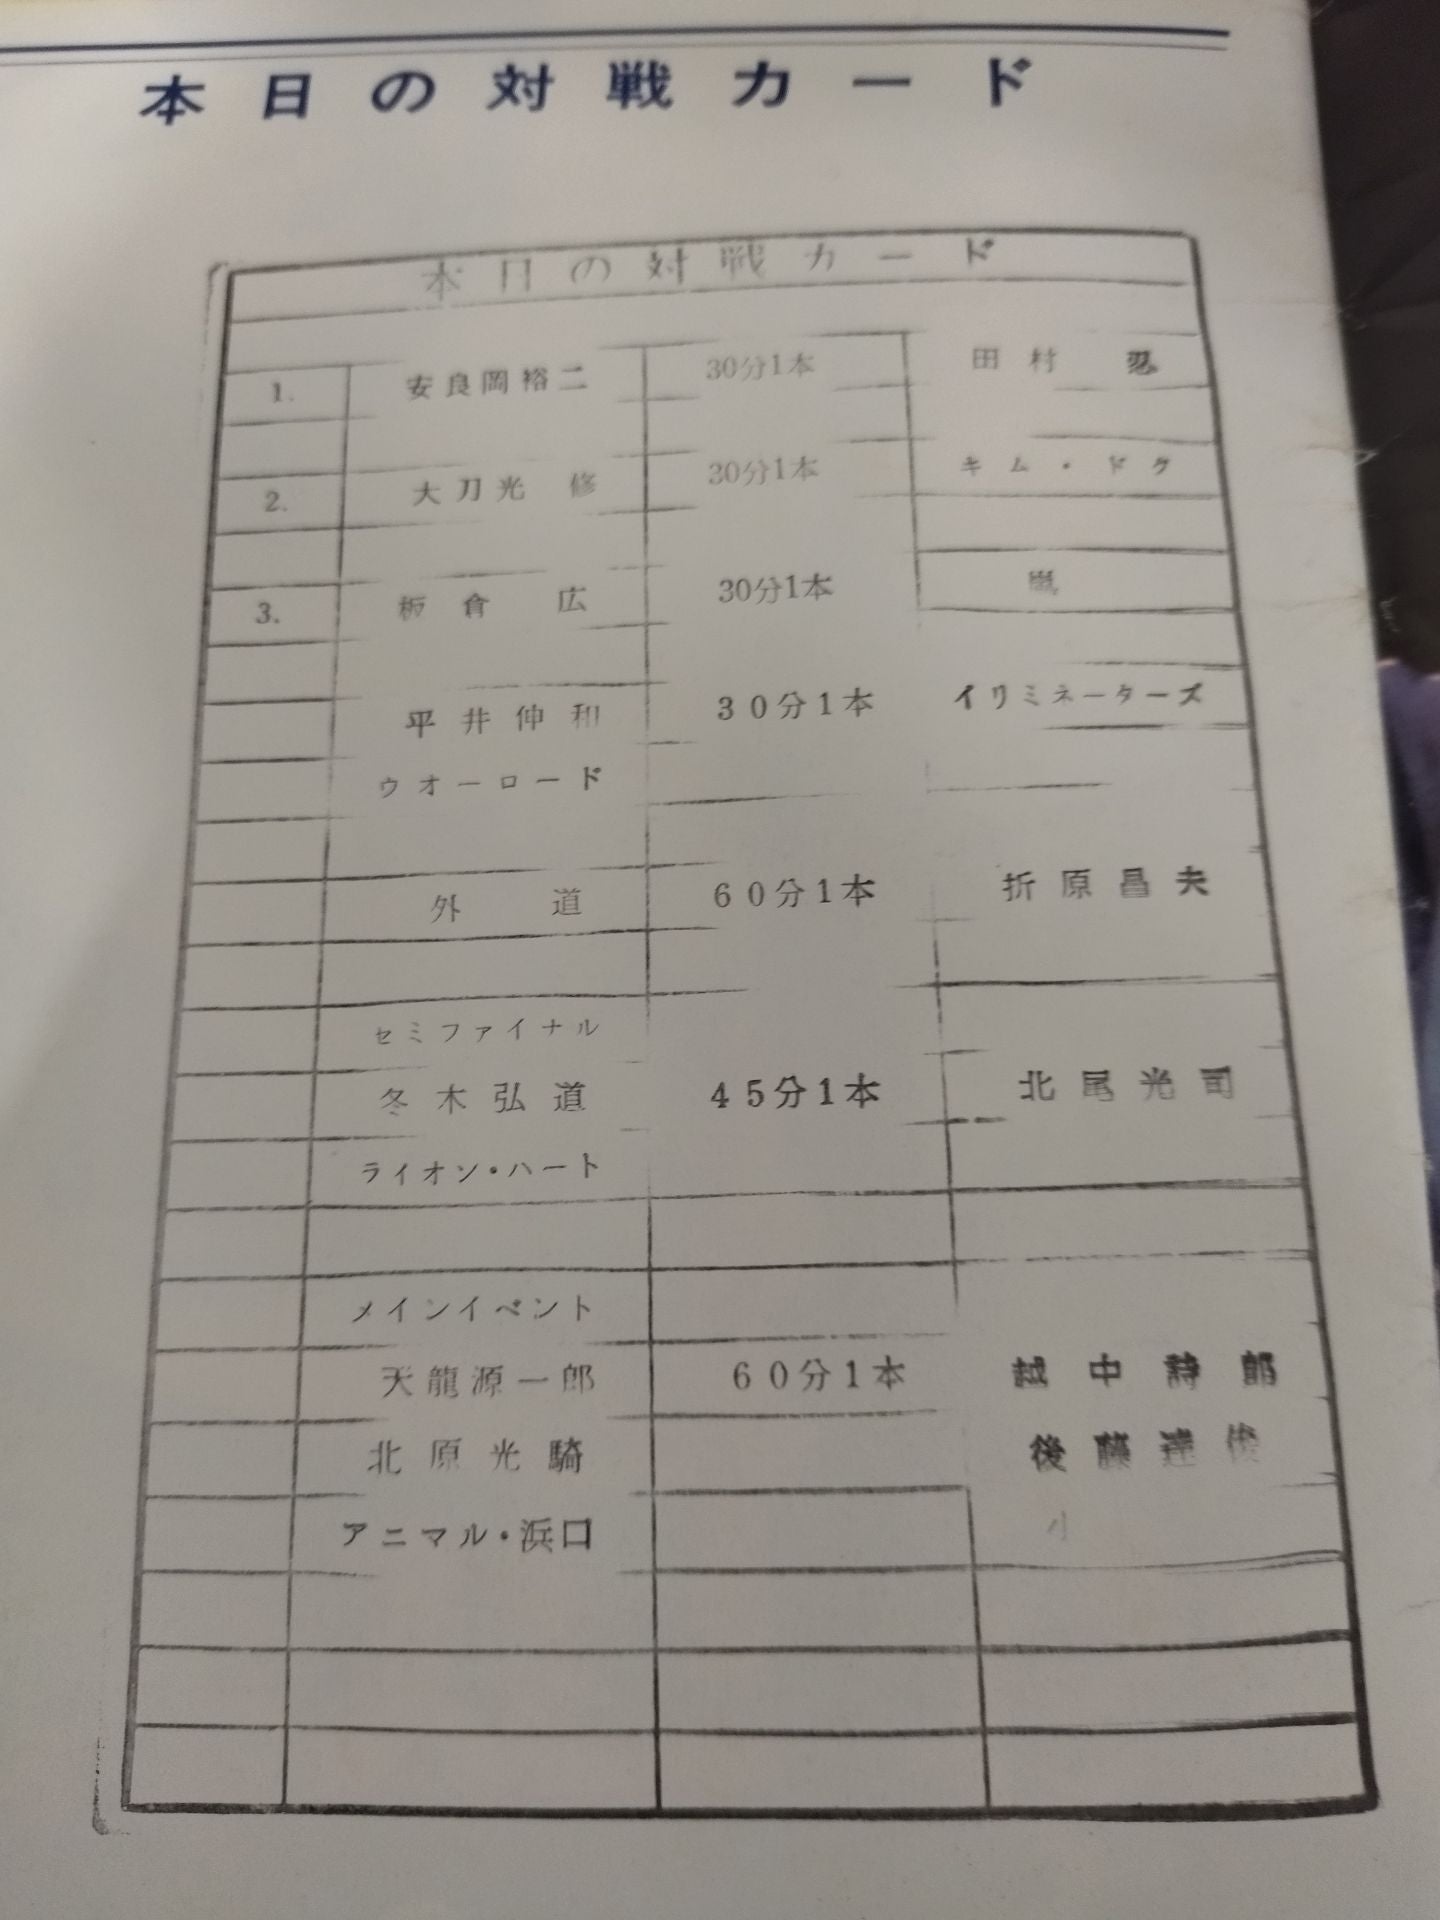 本日の対戦カード
本日の対戦カード
1. 安良岡裕二 30分1本 田村 忍
2. 大刀光 修 30分1本 キム・ドク
3. 板倉 広 30分1本
平井伸和 30分1本 イリミネーターズ
ウオーロード
外 道 60分1本 折原昌夫
セミファイナル
冬木弘道 45分1本 北尾光司
ライオン・ハート
メインイベント
天龍源一郎 60分1本 越中詩郎
北原光騎 後藤達俊
アニマル・浜口 小